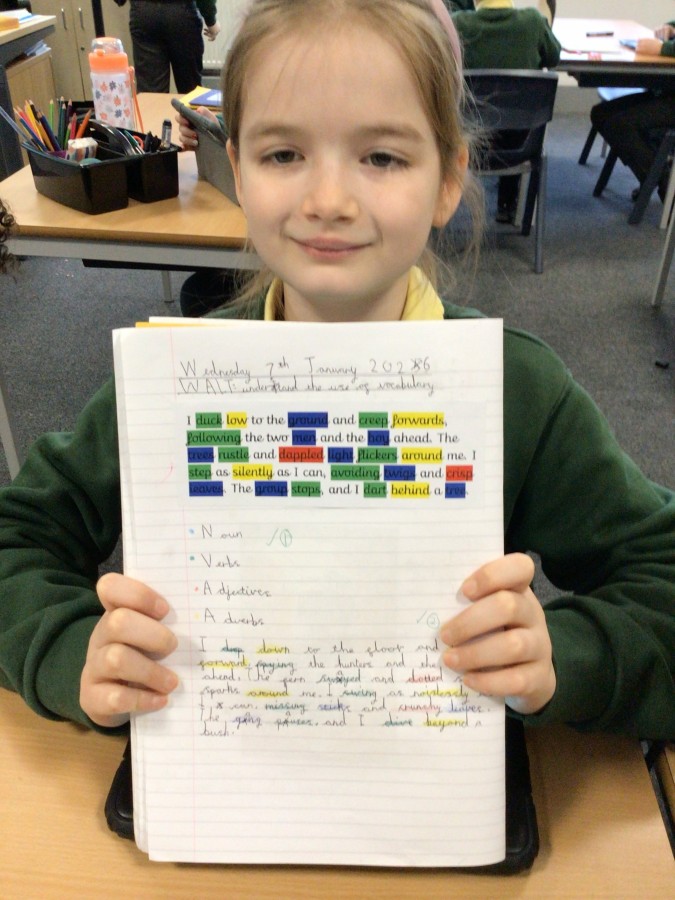 Wednesday 7th January 2026
WALT: understand the use of vocabulary
I duck low to the ground and creep forwards,
following the two men and the boy ahead. The
trees rustle and dappled light flickers around me. I
step as silently as I can, avoiding twigs and crisp
leaves. The group stops, and I dart behind a tree.
Noun
1
Verbs
Adjectives
Adverbs
2
I drop down to the floor and
forward spying the hunters and the
ahead. The fern swayed and dotted
sparks around me. I swing as noiselessly
I can, missing sticks and crunchy leaves.
The gang pauses, and I dive beyond a
bush.